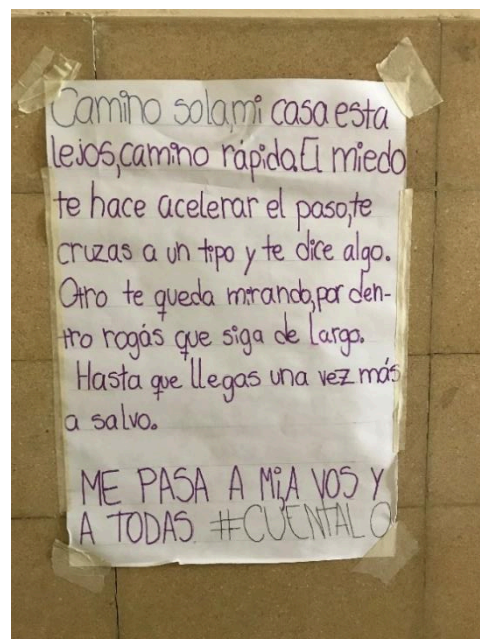 Camino sola,mi casa esta
lejos,camino rápida.El miedo
te hace acelerar el paso,te
cruzas a un tipo y te dice algo.
Otro te queda mirando,por den-
tro rogás que siga de largo.
Hasta que llegas una vez más
a salvo.
ME PASA A MI,A VOS Y
A TODAS. #CUENTALO